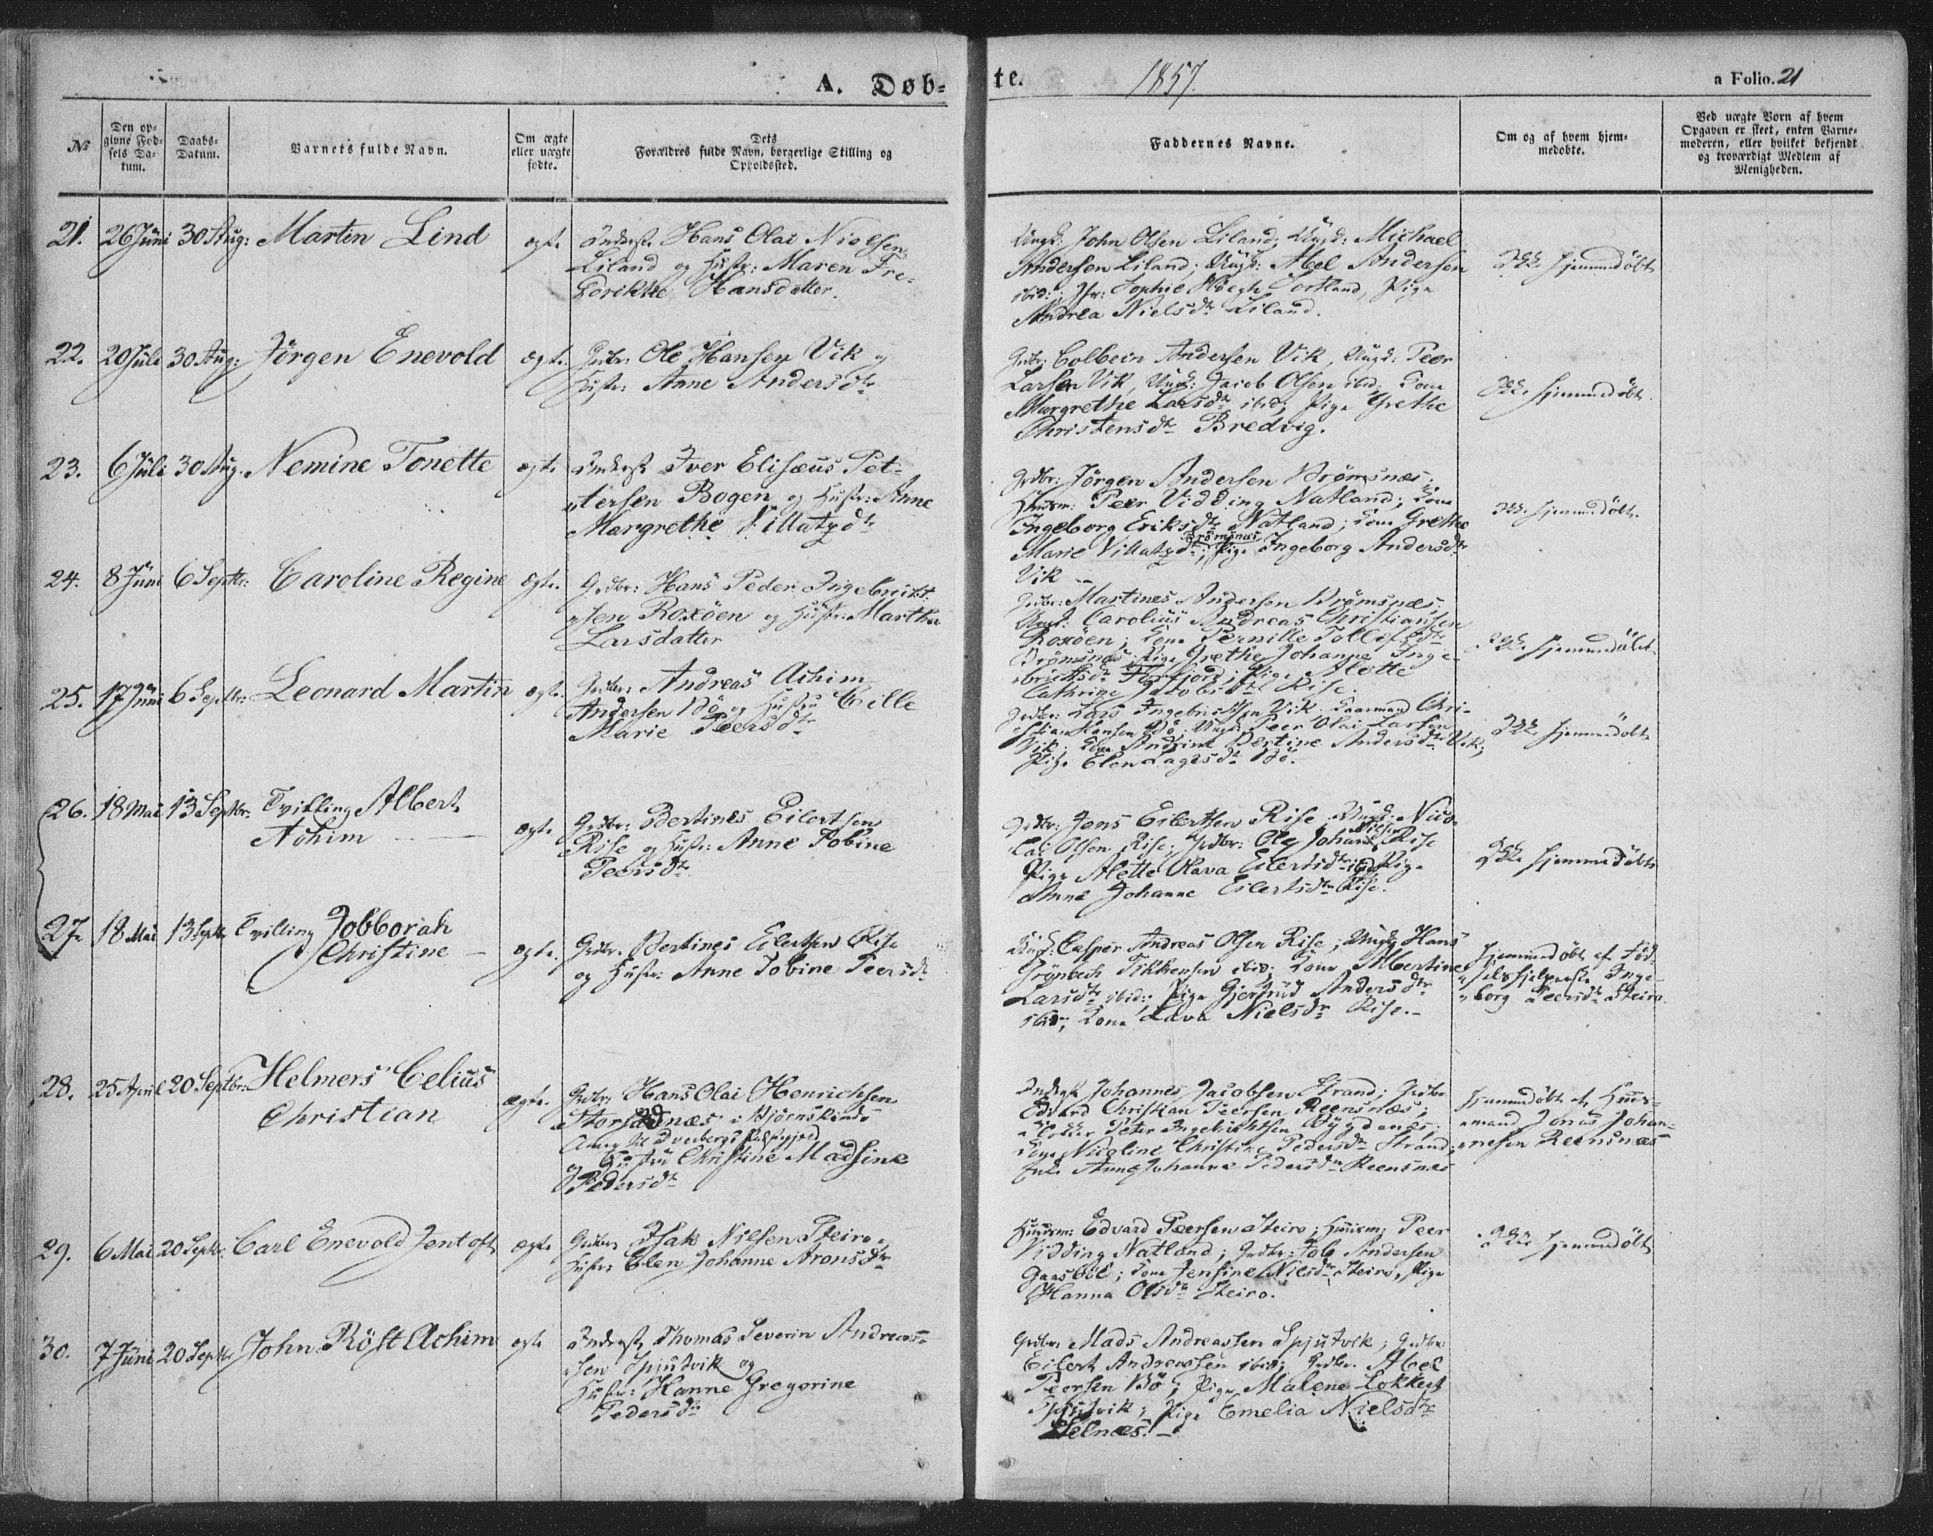 A. Døb-
te.
1857.
a Folio. 21
No
Den op-
givne Fød-
sels Da-
tum.
Daabs-
Datum.
Barnets fulde Navn.
Om ægte
eller uægte
fødte.
Dets
Forældres fulde Navn, borgerlige Stilling og
Opholdssted.
Faddernes Navne.
Om og af hvem hjem-
medøbte.
Ved uægte Børn af hvem
Opgaven er skeet, enten Barne-
moderen, eller hvilket bekjendt
og troværdigt Medlem af
Menigheden.
21. 26 Juni 30 Aug: Martin Lind ægte
Inderst Hans Olai Nielsen
Liland og Hustr: Maren Fre-
derikke Hansdatter.
Ungk: John Olsen Liland; Ungk: Michael
Andersen Liland; Ungk: Abel Andersen
ibid:; Jfr: Sophie Sortland, Pige
Andrea Nielsdtr Liland.
Ikke hjemmedöbt
22. 20 Juli 30 Aug: Jörgen Enevold ægte
Grdbr: Ole Hansen Vik og
Hustr: Anne Andersdtr
Grdbr: Colbein Andersen Vik, Ungk: Peer
Larsen Vik, Ungk: Jacob Olsen ibid; Kone
Margrethe Larsdtr ibid; Pige Grethe
Christensdtr Bredvig.
Ikke hjemmedöbt.
23. 6 Juli 30 Aug. Nemine Tonette ægte
Inderst Iver Elisæus Pet-
tersen Bogen og Hustr: Anne
Margrethe Villatzdtr
Grdbr: Jörgen Andersen Brömsnæs;
Huusm: Peer Vidding Natland; Kone
Ingeborg Eriksdtr Natland; Kone Grethe
Marie Villatzdtr Brömsnæs; Pige Ingeborg Andersdtr
Vik
Ikke hjemmedöbt.
24. 8 Juni 6 Septbr: Caroline Regine ægte.
Grdbr: Hans Peder Ingebrigt-
sen Roxöen og Hustr: Martha
Larsdatter
Grdbr: Martines Andersen Brömsnæs;
Ungk: Carolius Andreas Christiansen
Roxöen; Kone Pernille Tollefsdtr
Brömsnæs; Pige Grethe Johanne Inge-
brigtsdtr; Pige Alette
Cathrine Jacobsdtr Rise.
Ikke hjemmedöbt
25. 17 Juni 6 Septbr: Leonard Martin ægte.
Grdbr: Andreas Achim
Andersen Bö og Hustru Cille
Marie Peersdtr
Grdbr: Lars Ingebrigtsen Vik; Chri-
stian Hansen Bö; Ungk: Peer Olai Larsen
Vik; Kone Andrine Bertine Andersdtr Vik;
Pige Elen Lagesdtr Bö.
Ikke hjemmedöbt
26. 18 Mai 13 Septbr: Tvilling Albert
Achim ægte
Grdbr: Bertines Eilertsen
Rise og Hustr: Anne Tobine
Peersdtr
Grdbr: Jens Eilertsen Rise; Ungk: Nico-
lai Olsen Rise; Grdbr: Ole Johan Rise
Pige Alette Olava Eilertsdtr ibid Pige
Anne Johanne Eilertsdtr Rise.
Ikke hjemmedöbt
27. 18 Mai 13 Septbr Tvilling Jobborah
Christine ægte.
Grdbr. Bertines Eilertsen Rise
og Hustr: Anne Tobine Peersdtr
Ungk: Casper Andreas Olsen Rise; Ungk Hans
Grönbech ibid; Kone Albertine
Larsdtr ibid; Pige Gjertrud Andersdtr
ibid; Kone Lava Nielsdtr Rise.
Hjemmedöbt af Fød-
selshjelperske Inge-
borg Peersdtr Steiro
28. 25 April 20 Septbr: Helmers Celius
Christian ægte.
Grdbr: Hans Olai Henrichsen
Storsandnæs i Bjørnskinds
Annex til Dverbergs Præstegjeld
og Hustru Christine Madsine
Pedersdtr
Inderst Johannes Jacobsen Strand; Grdbr
Edvard Christian Peersen Reensnæs;
Peter Ingebrigtsen Bygdenæs;
Kone Nicoline Christine Pedersdtr Strand;
Anne Johanne Pedersdtr Reensnæs
Hjemmedöbt af Huus-
mand Jonas Johan-
nesen Reensnæs
29. 6 Mai 20 Septbr. Carl Enevold Jentoft ægte
Grdbr Isak Nilsen Steiro og
Hustr Elen Johanne Aronsdtr
Huusm: Edvard Peersen Steiro; Huusm: Peer
Vidding Natland; Grdbr: Job Andersen
Gaasböl; Kone Jensine Nilsdtr Steiro, Pige
Hanna Olsdtr Steiro.
Ikke hjemmedöbt
30. 7 Juni 20 Septbr John Röst Achim ægte
Inderst Thomas Severin Andreas-
sen Spjutvik og
Hustr: Hanne Gregorine
Pedersdtr
Grdbr: Mads Andreassen Spjutvik; Grdbr
Eilert Andreassen ibid; Grdbr. Abel
Peersen Bö; Pige Malene Lokkert
Spjutvik; Pige Emelia Nielsdtr
Selnæs.